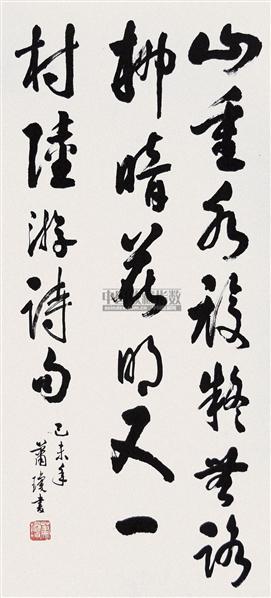 山重水複疑無路
柳暗花明又一
村陸游詩句
己未年
蕭瓊書